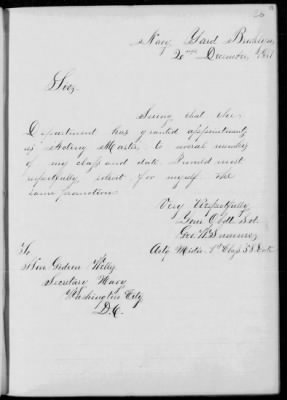 Navy Yard Brooklyn
20 December 1861
Sir,
Seeing that the
Department has granted appointments
as Acting Master, to several members
of my class and date I would most
respectfully, solicit for myself the
same promotion.
Very Respectfully
Your Obdt Svt.
Geo. W.
Actg Midn 1st Class
To
Hon Gideon Welles
Secretary Navy
Washington City
D.C.